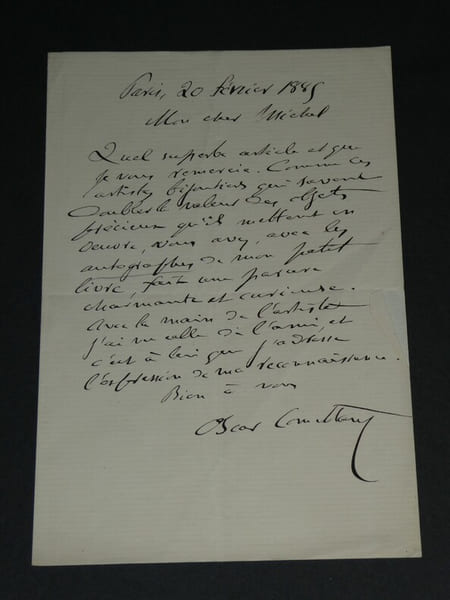 Paris, 20 février 1885
Mon cher Michel
Quel superbe article et que
je vous remercie. Comme ces
artistes bijoutiers qui savent
doubler la valeur des objets
précieux qu'ils mettent en
oeuvre, vous avez, avec les
autographes de mon petit
livre, fait une parure
charmante et curieuse.
Avec la main de l'artiste
j'ai vu celle de l'ami, et
c'est à lui que j'adresse
l'expression de ma reconnaissance.
Bien à vous
Oscar Comettant